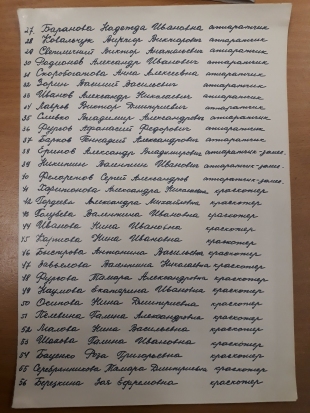 27 Баранова Надежда Ивановна аппаратчик
28 Ковальчук Виктор Викторович аппаратчик
29 Светличный Виктор Анатольевич аппаратчик
30 Родионов Александр Иванович аппаратчик
31 Скоробогатова Анна Алексеевна аппаратчик
32 Зорин Василий Васильевич аппаратчик
33 Иванов Александр Николаевич аппаратчик
34 Лавров Виктор Дмитриевич аппаратчик
35 Сливко Владимир Александрович аппаратчик
36 Фурсов Афанасий Федорович аппаратчик
37 Барков Геннадий Александрович аппаратчик
38 Ермаков Александр Владимирович
39 Никишин Валентин Иванович
40 Сергей Александрович
41 Харитонова Александра красковар
42 Гордеева Александра Михайловна красковар
43 Голубева Валентина Ивановна красковар
44 Иванова Нина Ивановна красковар
45 Карпова Нина Ивановна красковар
46 Быстрова Антонина Васильевна красковар
47 Завьялова Валентина Николаевна красковар
48 Фурсова Тамара Александровна красковар
49 Наумова Екатерина Ивановна красковар
50 Осипова Нина Дмитриевна красковар
51 Галина Александровна красковар
52 Малова Нина Васильевна красковар
53 Шахова Галина Ивановна красковар
54 Баценко Роза Григорьевна красковар
55 Серебренникова Тамара Дмитриевна красковар
56 Березкина Зоя Ефремовна красковар